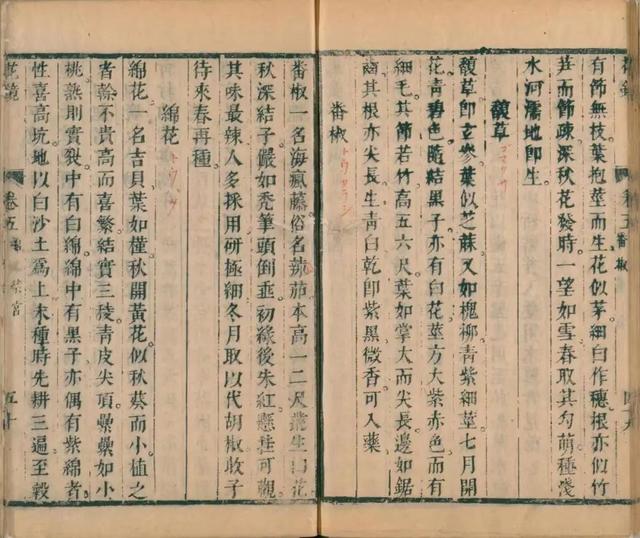 番椒
有節無枝葉抱莖而生花似茅細白作穗根亦似竹
笋而節疎深秋花發時一望如雪春取其勾萌種淺
水河濡地即生
馥草
ゴマクサ
馥草即玄參葉似芝蔴又如槐柳青紫細莖七月開
花青碧色隨結黑子亦有白花莖方大紫赤色而有
細毛其節若竹高五六尺葉如掌大而尖長邊如鋸
齒其根亦尖長生青白乾即紫黑微香可入藥
番椒
トウガラシ
番椒一名海瘋藤俗名辣茄本高一二尺叢生白花
秋深結子儼如禿筆頭倒垂初綠後朱紅懸挂可觀
其味最辣人多採用研極細冬月取以代胡椒收子
待來春再種
綿花
綿花一名吉貝葉如槿秋開黃花似秋葵而小植之
者榦不貴高而喜繁結實三稜青皮尖頂纍纍如小
桃熟則實裂中有白綿綿中有黑子亦偶有紫綿者
性喜高坑地以白沙土爲上未種時先耕三遍至穀
花鏡
卷五
五十